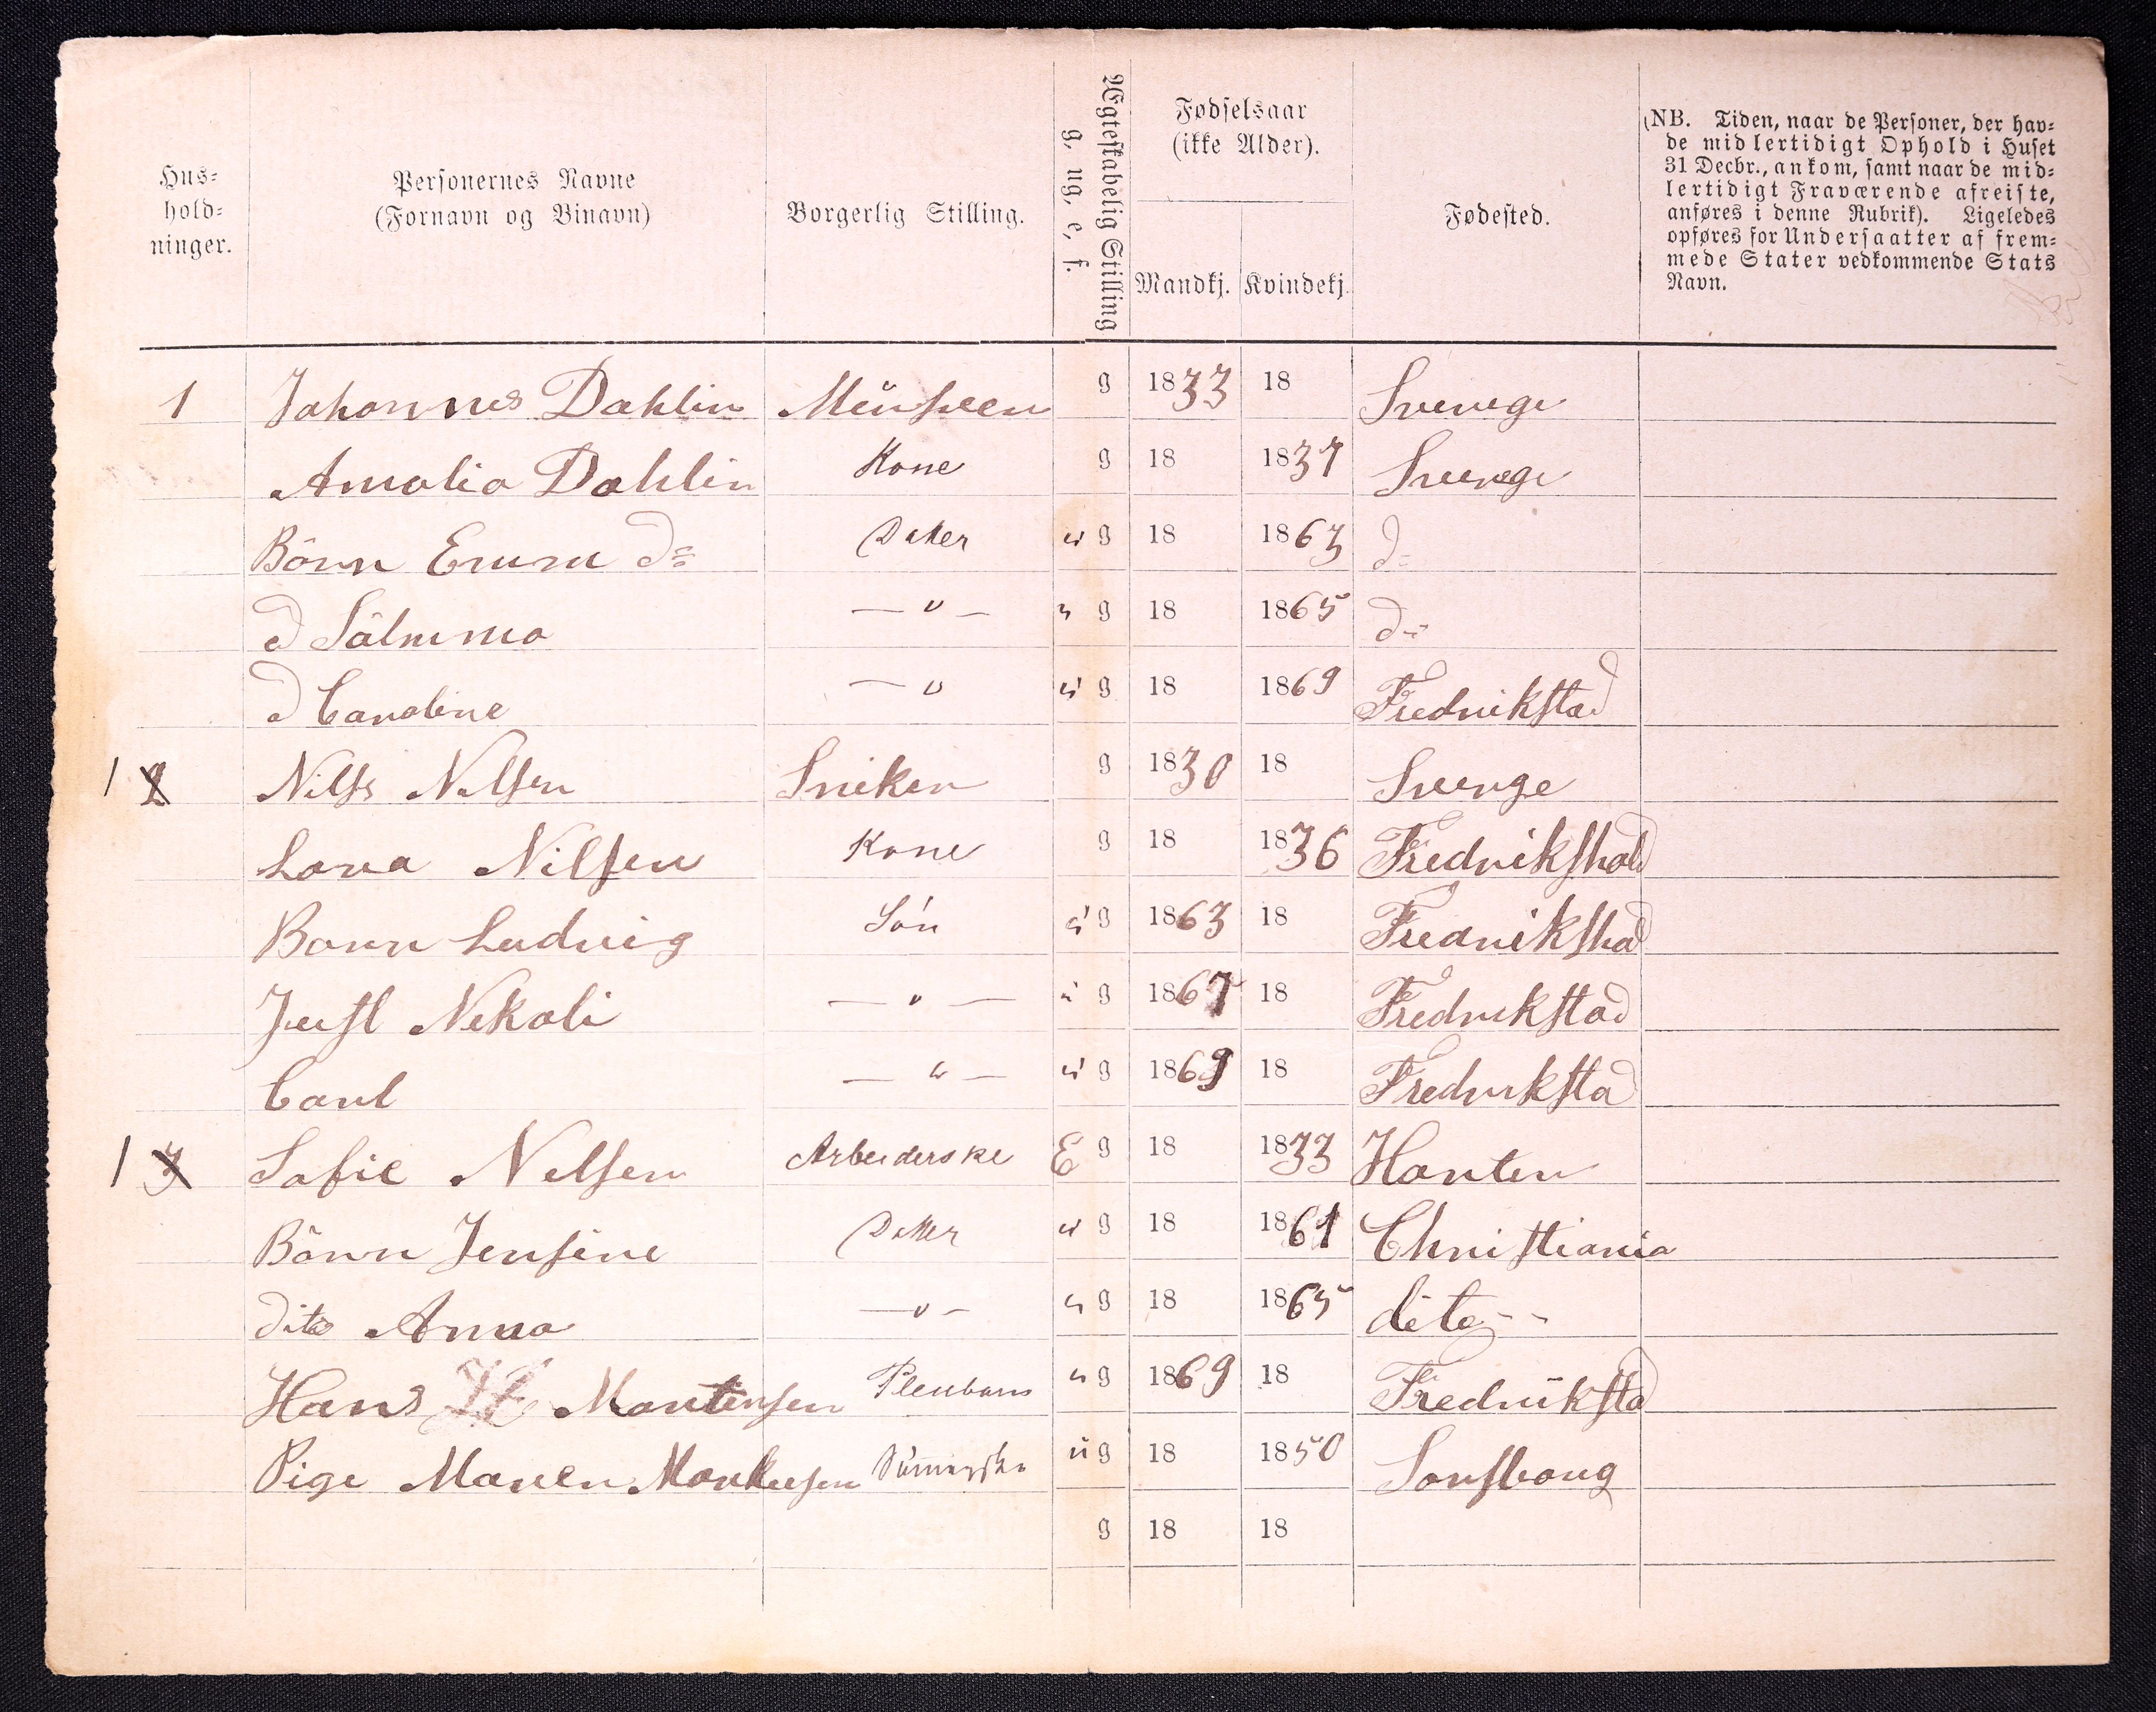 Hus-
hold-
ninger.
Personernes Navne
(Fornavn og Binavn)
Borgerlig Stilling.
Ægteskabelig Stilling
g, ug, e, f.
Fødselsaar
(ikke Alder).
Mandkj. Kvindekj.
Fødested.
(NB. Tiden, naar de Personer, der hav-
de midlertidigt Ophold i Huset
31 Decbr., ankom, samt naar de mid-
lertidigt Fraværende afreiste,
anføres i denne Rubrik). Ligeledes
opføres for Undersaatter af frem-
mede Stater vedkommende Stats
Navn.
1 Johannes Dahlin g 1833 18 Sverege
Amalia Dahlin Kone g 18 1837 Sverege
Börn Emma do Datter u g 18 1863 do
d Sälmma — " — u g 18 1865 do
d Caroline — " u g 18 1869 Fredrikstad
1 2 Nills Nilsen Sniker g 1830 18 Sverge
Lova Nilsen Kone g 18 1836 Fredrikshald
Born Ludvig Sön u g 1863 18 Fredrikshad
Just Nekoli — " — u g 1867 18 Fredrikstad
Carl — " — u g 1869 18 Fredrikstad
1 3 Sofie Nelsen Arbeiderske E g 18 1833 Horten
Börn Jensine Datter u g 18 1861 Christiania
dito Anna — " — u g 18 1865 dito
Hans Martinsen Pleubarn u g 1869 18 Fredrikstad
Pige Maren u g 18 1850 Sarsborg
g 18 18